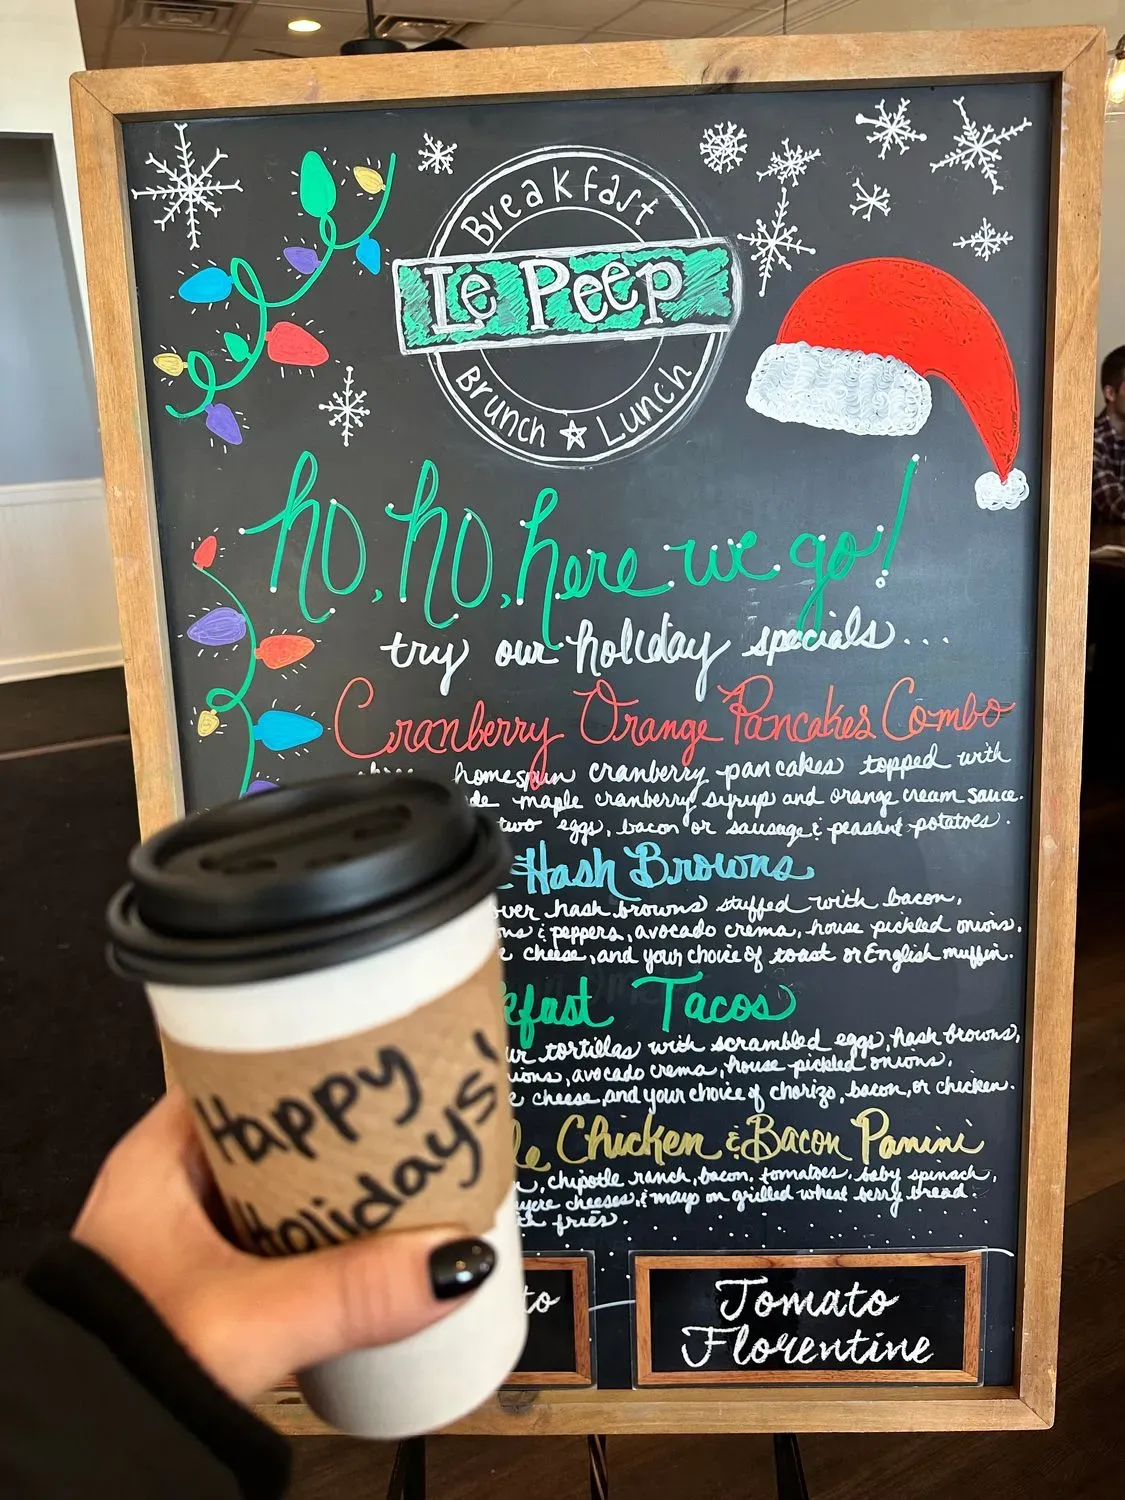 Breakfast
Le Peep
Brunch ☆ Lunch
ho, ho, here we go!
try our holiday specials...
Cranberry Orange Pancakes Combo
homespun cranberry pancakes topped with
maple cranberry syrup and orange cream sauce.
two eggs, bacon or sausage & peasant potatoes.
Hash Browns
over hash browns stuffed with bacon,
& peppers, avocado crema, house pickled onions.
cheese, and your choice of toast or English muffin.
Tacos
tortillas with scrambled eggs, hash browns,
avocado crema, house pickled onions,
cheese, and your choice of chorizo, bacon, or chicken.
Chicken & Bacon Panini
chipotle ranch, bacon, tomatoes, baby spinach,
cheeses, & mayo on grilled wheat berry bread.
fries.
Happy
Holidays!
Tomato
Florentine